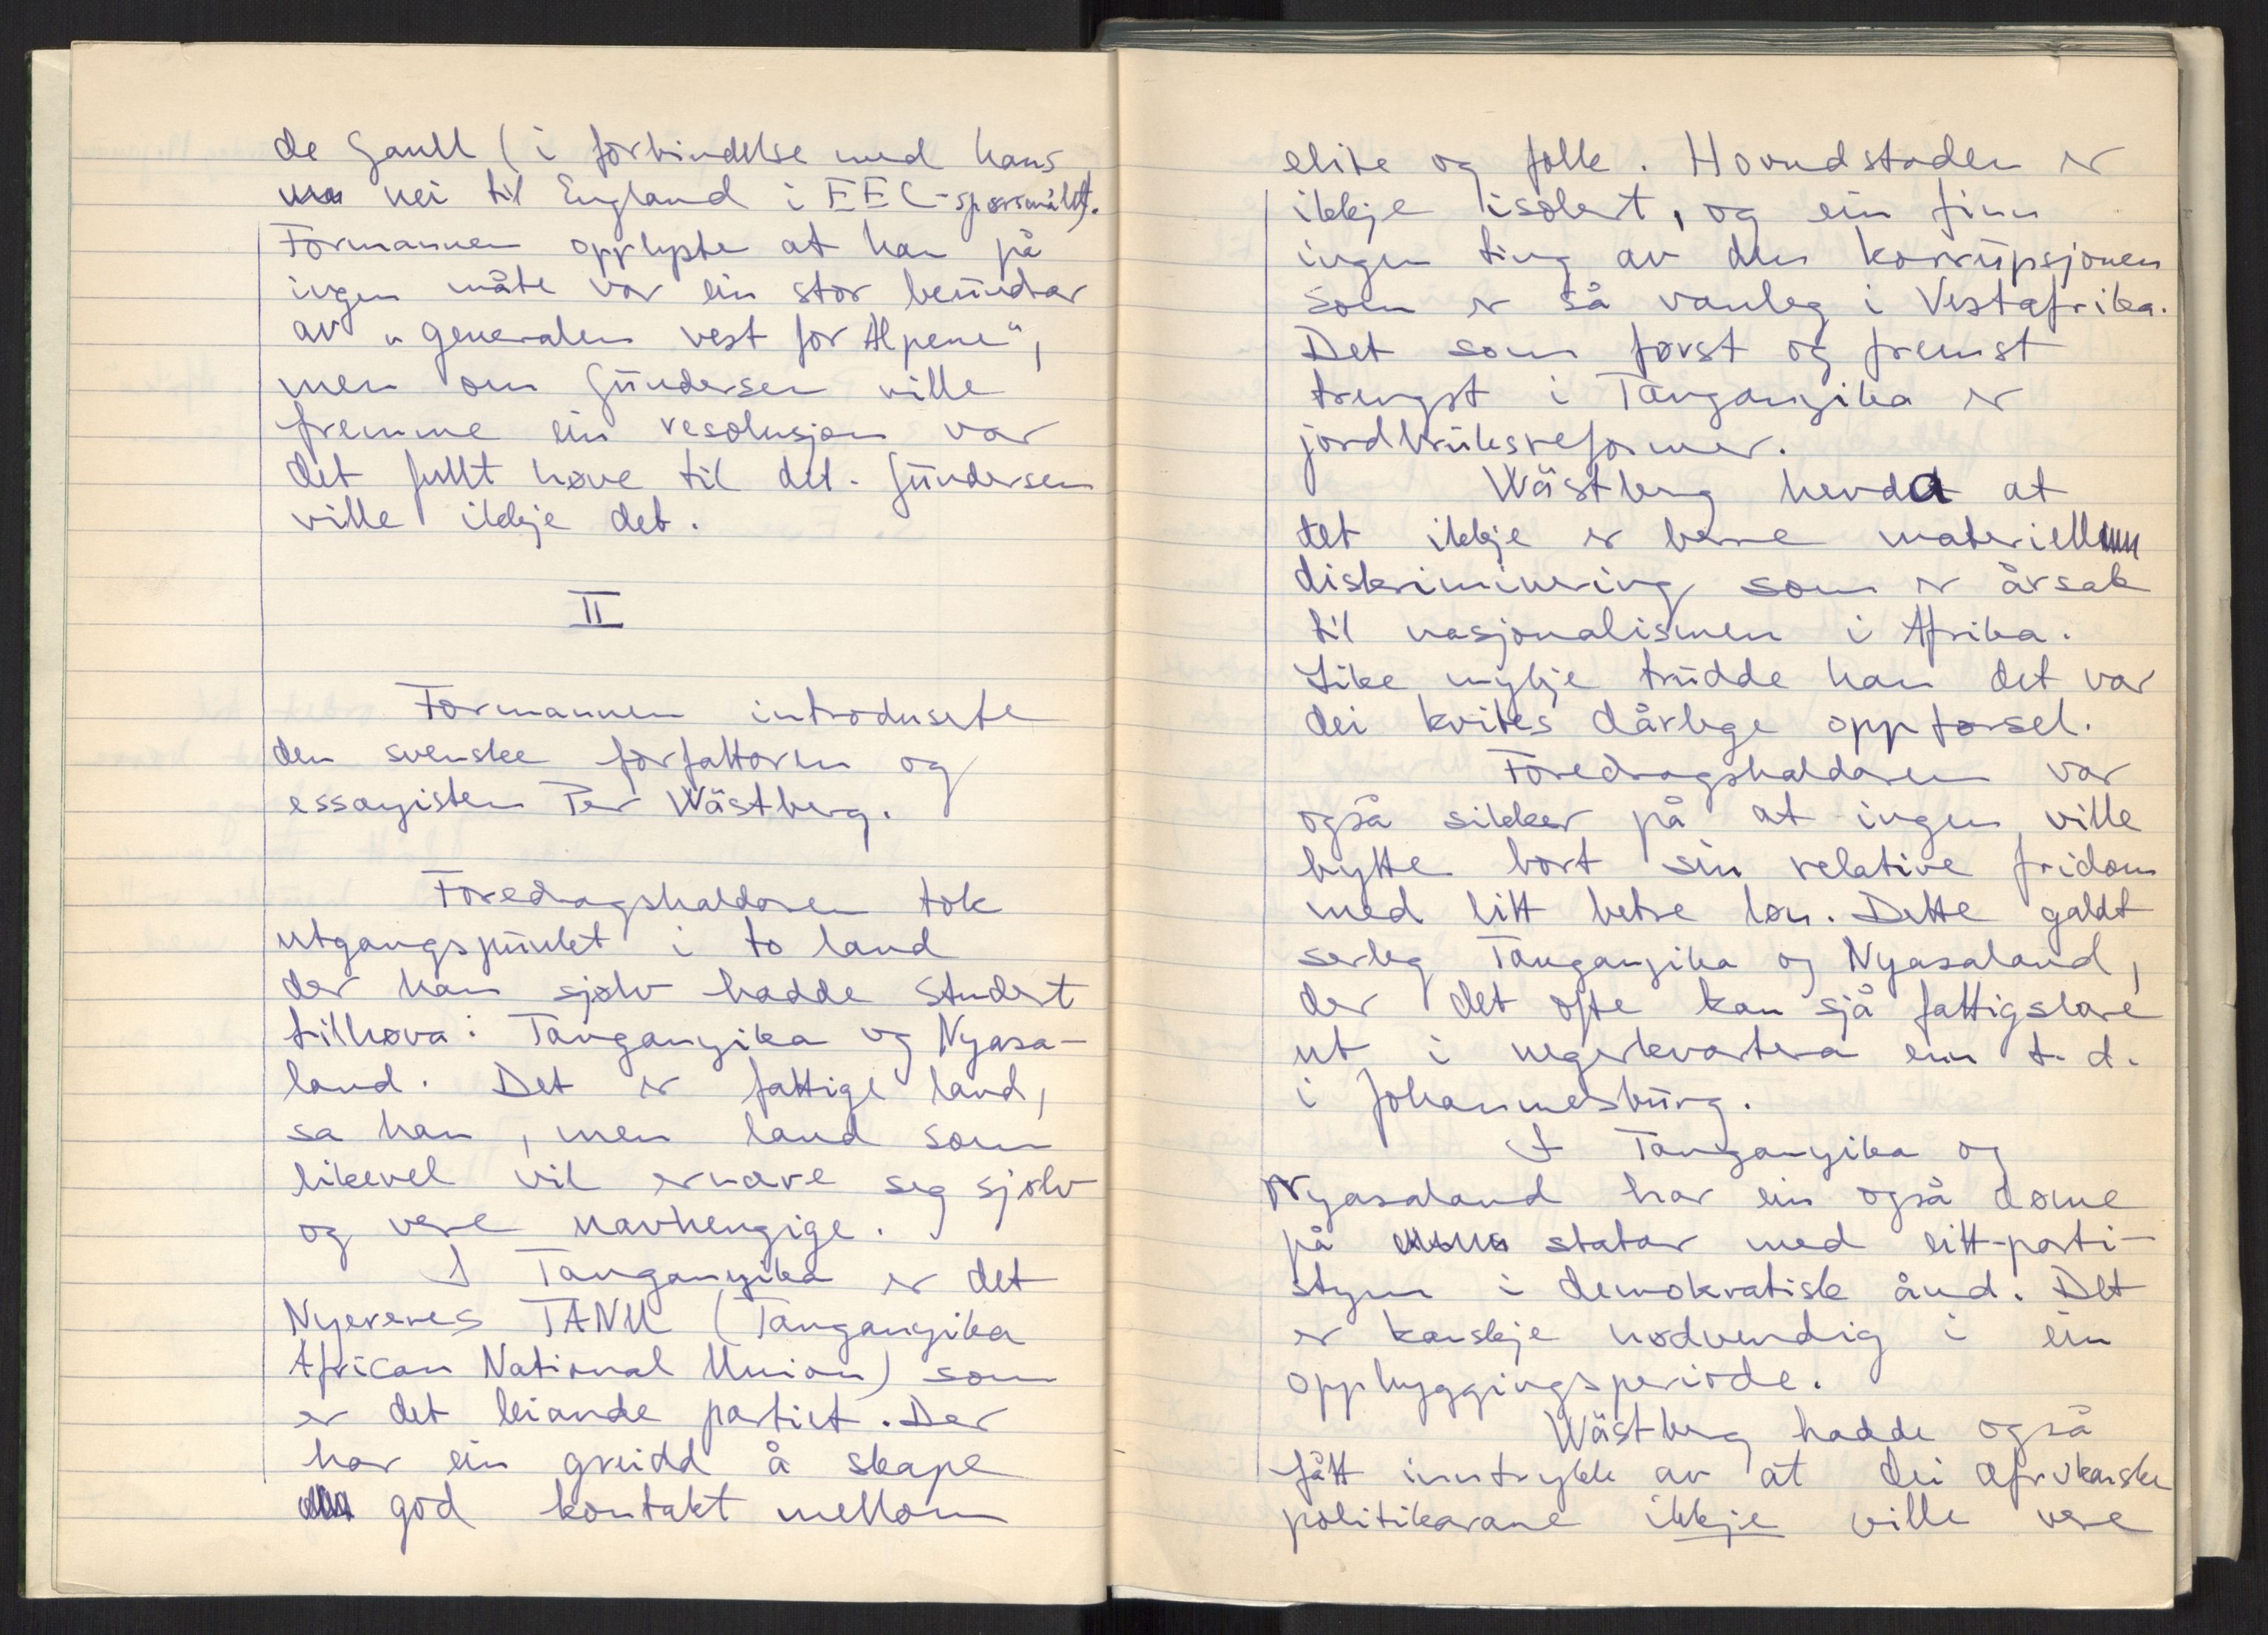 de Gaull (i forbindelse med hans
nei til England i EEC-spørsmålet).
Formannen opplyste at han på
ingen måte var ein stor beundrar
av „generalen vest for Alpene",
men om Gundersen ville
fremme ein resolusjon var
det fullt høve til det. Gundersen
ville ikkje det.
II
Formannen introduserte
den svenske forfattaren og
essayisten Per Wästberg.
Foredragshaldaren tok
utgangspunkt i to land
der han sjølv hadde studert
tilhøva: Tanganyika og Nyasa-
land. Det er fattige land,
sa han, men land som
likevel vil ernære seg sjølv
og vere uavhengige.
I Tanganyika er det
Nyereres TANU (Tanganyika
African National Union) som
er det leiande partiet. Der
har ein greidd å skape
god kontakt mellom
elite og folk. Hovudstaden er
ikkje isolert, og ein finn
ingen ting av den korrupsjonen
som er så vanleg i Vestafrika.
Det som først og fremst
trengst i Tanganyika er
jordbruksreformer.
Wästberg hevda at
det ikkje er berre materiell
diskriminering som er årsak
til nasjonalismen i Afrika.
Like mykje trudde han det var
dei kvites dårlege oppførsel.
Foredragshaldaren var
også sikker på at ingen ville
bytte bort sin relative fridom
med litt betre løn. Dette galdt
serleg Tanganyika og Nyasaland,
der det ofte kan sjå fattigslare
ut i negerkvartera enn t.d.
i Johannesburg.
I Tanganyika og
Nyasaland har ein også døme
på statar med eitt-parti-
styre i demokratisk ånd. Det
er kanskje nødvendig i ein
oppbyggingsperiode.
Wästberg hadde også
fått inntrykk av at dei afrikanske
politikarane ikkje ville vere